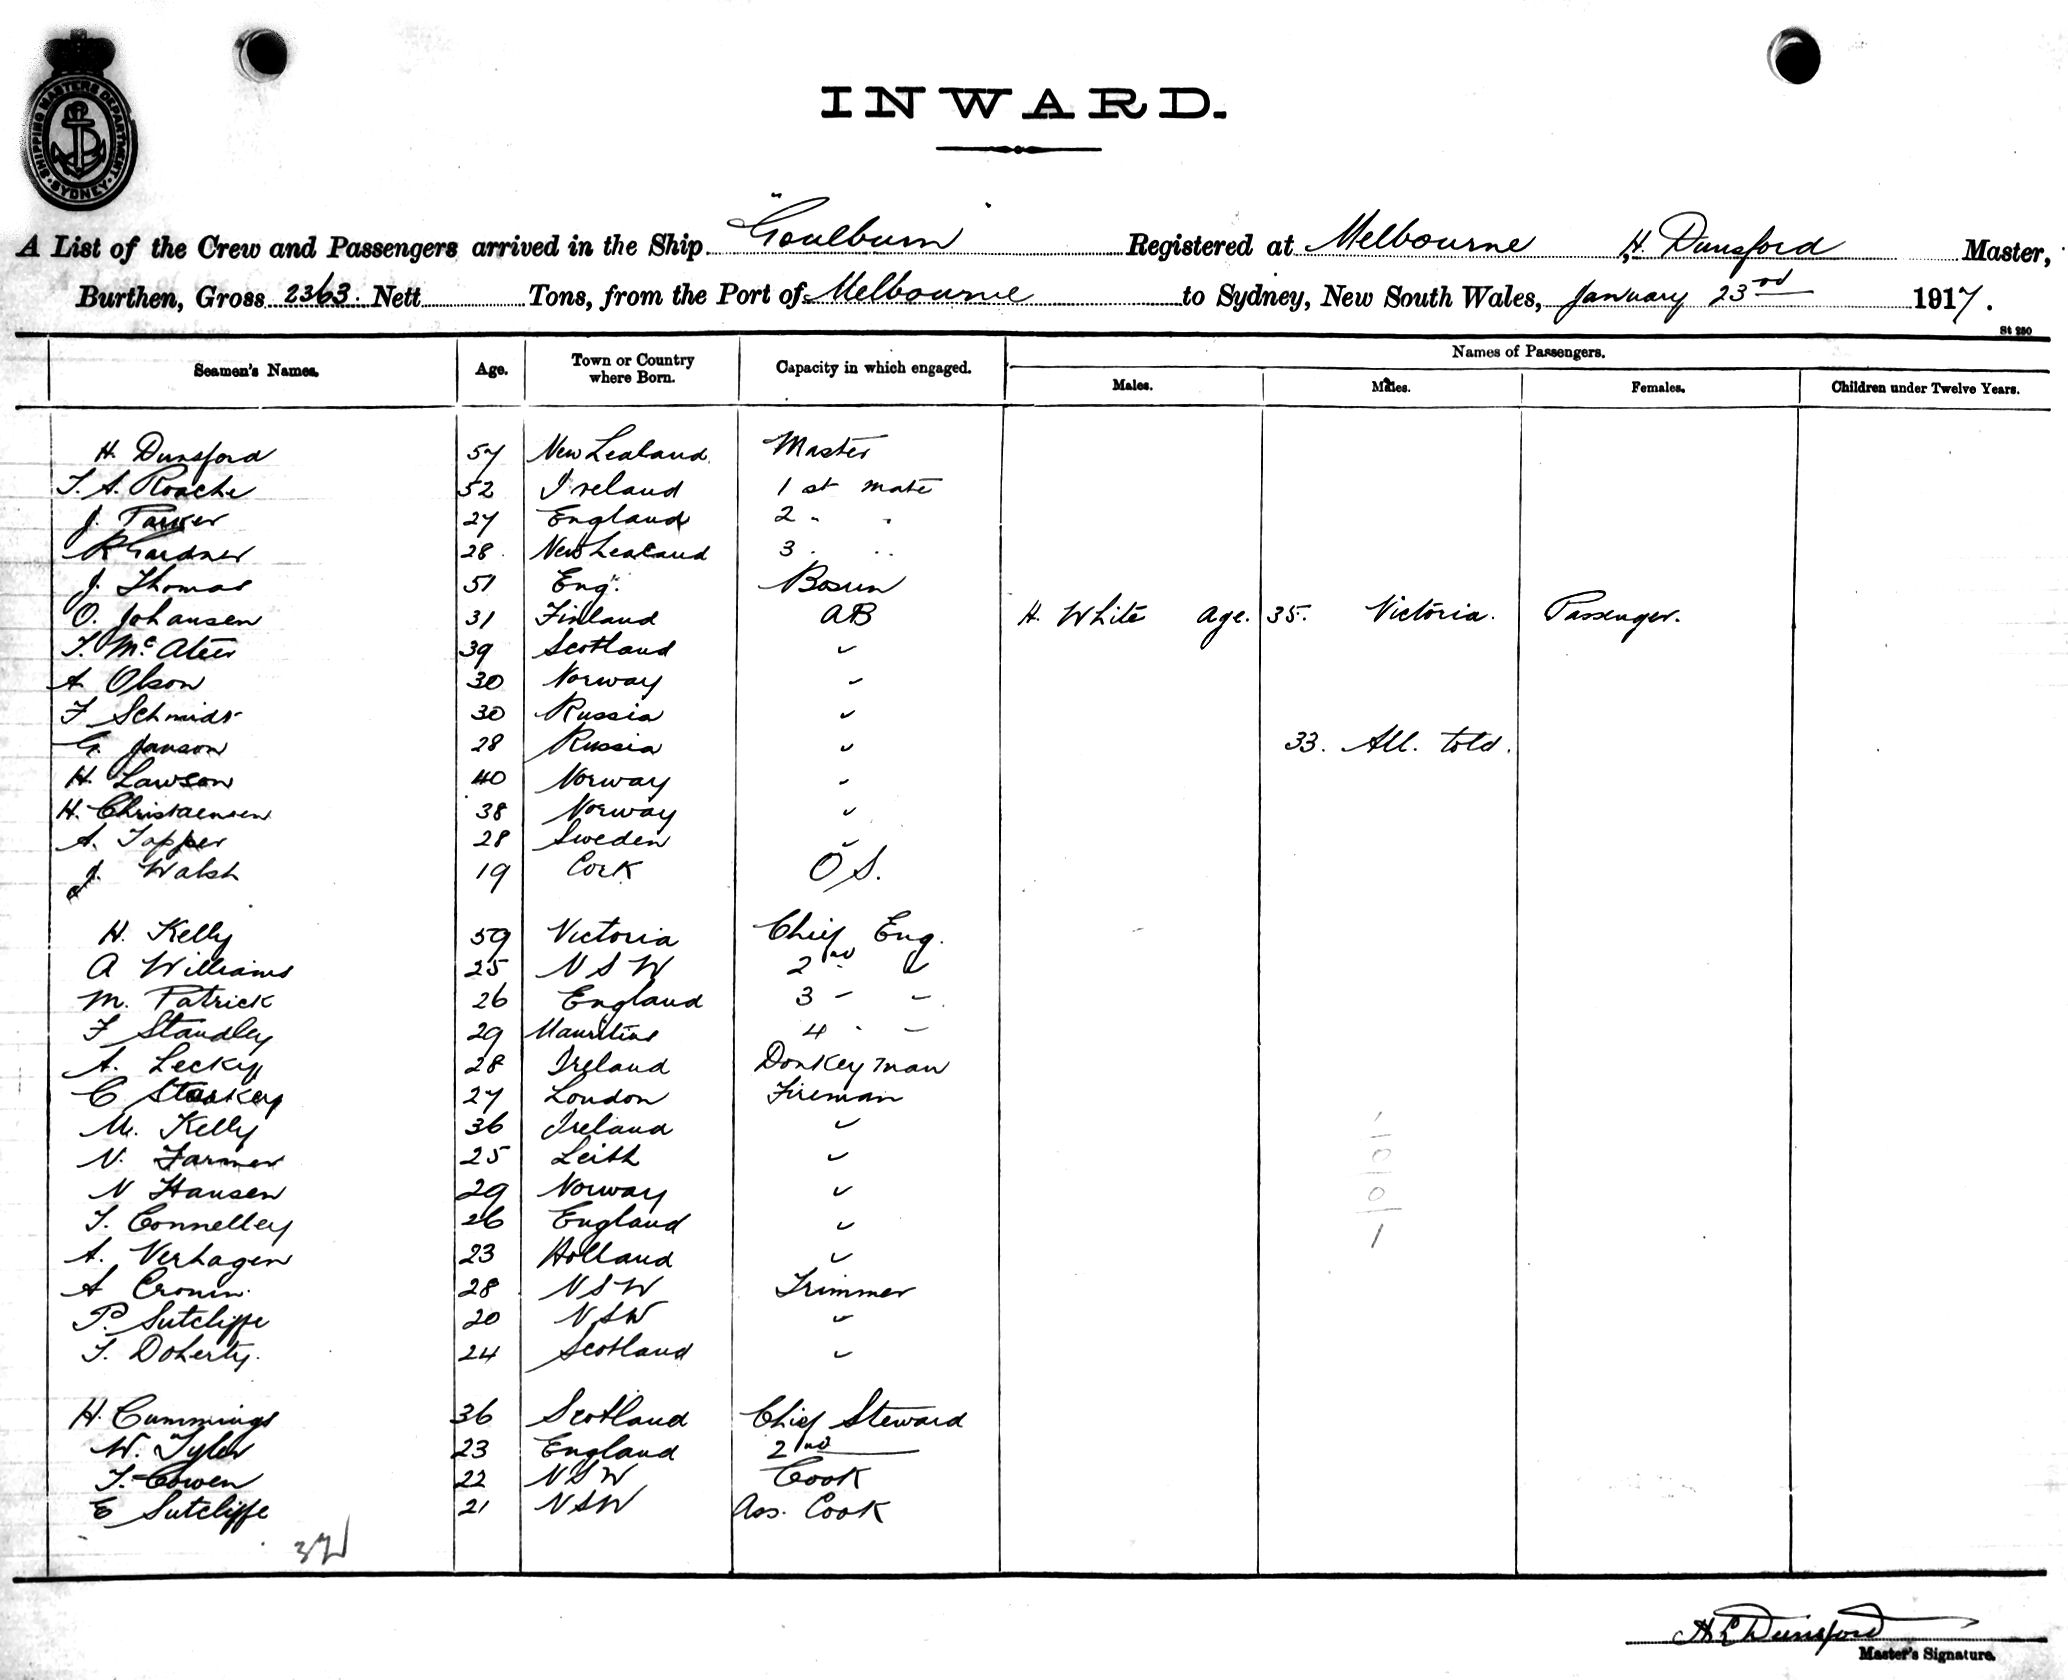 SHIPPING MASTERS DEPARTMENT
· SYDNEY ·
INWARD.
A List of the Crew and Passengers arrived in the Ship "Goulburn" Registered at Melbourne, H. Dunsford Master,
Burthen, Gross 2363 Nett Tons, from the Port of Melbourne to Sydney, New South Wales, January 23rd 1917.
St 280
Seamen's Names. Age. Town or Country where Born. Capacity in which engaged. Names of Passengers.
Males. Males. Females. Children under Twelve Years.
H. Dunsford 57 New Zealand Master
T. A. Roache 52 Ireland 1st mate
J. Parker 27 England 2 " "
R Gardner 28 New Zealand 3 " "
J. Thomas 51 Eng. Bosun
O. Johansen 31 Finland AB H. White age. 35. Victoria. Passenger.
T. McAteer 39 Scotland "
A Olson 30 Norway "
F Schmidt 30 Russia "
G. Janson 28 Russia " 33. All. told.
H. Lawson 40 Norway "
H. Christaensen 38 Norway "
A. Topper 28 Sweden "
J. Walsh 19 Cork O S.
H. Kelly 59 Victoria Chief Eng.
A Williams 25 N S W 2nd "
M. Patrick 26 England 3 " "
F Standley 29 Mauritius 4 " "
A. Lecky 28 Ireland Donkeyman
C Starkey 27 London Fireman
M. Kelly 36 Ireland "
N. Farmer 25 Leith "
N Hansen 29 Norway "
T. Connelley 26 England "
A. Verhagen 23 Holland "
A Cronin. 28 N S W Trimmer
P. Sutcliffe 20 N S W "
T. Doherty. 24 Scotland "
H. Cummings 36 Scotland Chief Steward
W. Tyler 23 England 2nd
T. Cowen 22 N S W Cook
E Sutcliffe 21 N S W Ass. Cook
32
H L Dunsford
Master's Signature.